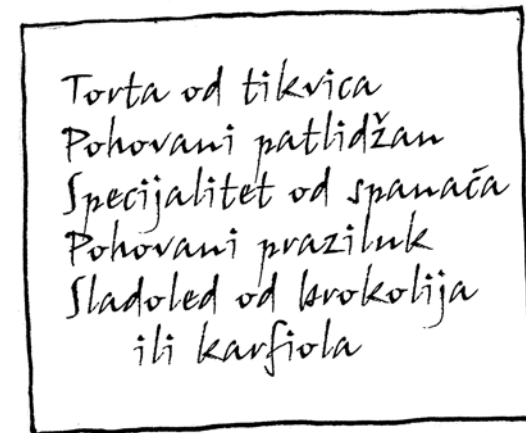 Torta od tikvica
Pohovani patlidžan
Specijalitet od spanaća
Pohovani praziluk
Sladoled od brokolija
ili karfiola